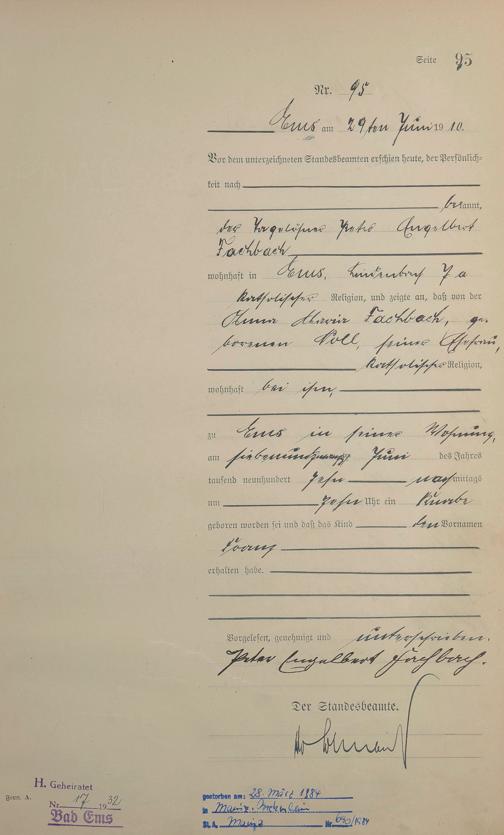 Seite 95
Nr. 95
Ems am 29ten Juni 1910.
Vor dem unterzeichneten Standesbeamten erschien heute, der Persönlich-
keit nach
bekannt,
der Tagelöhner Peter Engelbert
Fachbach
wohnhaft in Ems, Lindenbach 7a
katholischer Religion, und zeigte an, daß von der
Anna Maria Fachbach, ge-
borenen Noll, seiner Ehefrau,
katholischer Religion,
wohnhaft bei ihm,
zu Ems in seiner Wohnung,
am siebenundzwanzigsten Juni des Jahres
tausend neunhundert zehn nachmittags
um zehn Uhr ein Knabe
geboren worden sei und daß das Kind den Vornamen
Franz
erhalten habe.
Vorgelesen, genehmigt und unterschrieben.
Peter Engelbert Fachbach.
Der Standesbeamte.
H. Geheiratet
Nr. 17 1932
Bad Ems
gestorben am: 28. März 1984
in Mainz
St. A. Mainz Nr. /1984